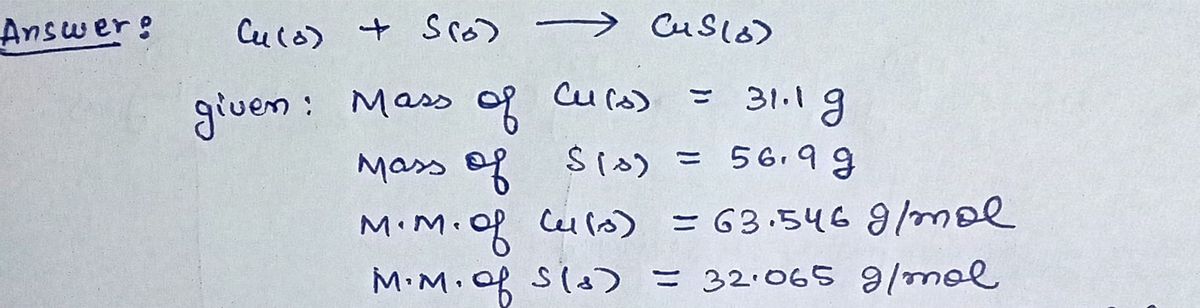 Answer: Cu(s) + S(s) → CuS(s)
given: Mass of Cu(s) = 31.1 g
Mass of S(s) = 56.9 g
M.M. of Cu(s) = 63.546 g/mol
M.M. of S(s) = 32.065 g/mol